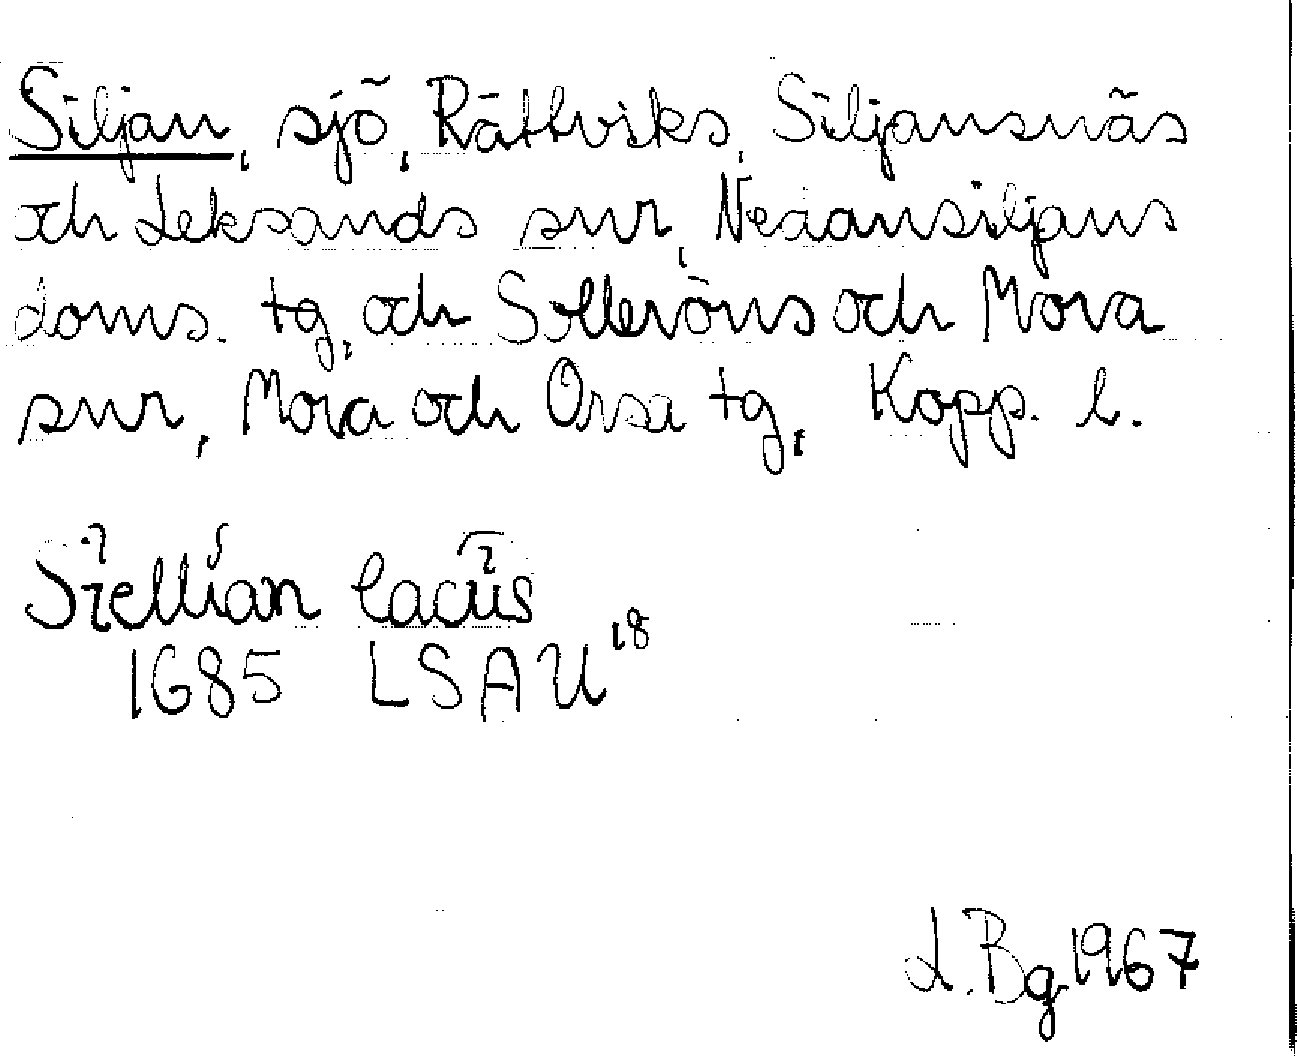 Siljan, sjö, Rättviks, Siljansnäs
och Leksands snr, Nedansiljans
doms. tg, och Solleröns och Mora
snr, Mora och Orsa tg, Kopp. l.
Siellian lacus
1685 LSAU 18
L.Bg.1967